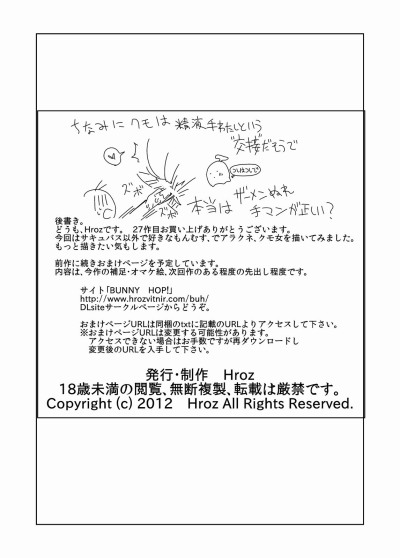 ちなみにクモは精液手わたしという
交接だそうで
ズボ
ズボ
本当は
ザーメンぬれ
手マンが正しい？
後書き。
どうも、Hrozです。 27作目お買い上げありがとうございます。
今回はサキュバス以外で好きなもんむす、でアラクネ、クモ女を描いてみました。
もっと描きたい気もします。
前作に続きおまけページを予定しています。
内容は、今作の補足・オマケ絵、次回作のある程度の先出し程度です。
サイト「BUNNY HOP!」
http://www.hrozvitnir.com/buh/
DLsiteサークルページからどうぞ。
おまけページURLは同梱のtxtに記載のURLよりアクセスして下さい。
※おまけページURLは変更する可能性があります。
アクセスできない場合はお手数ですが再ダウンロードし
変更後のURLを入手して下さい。
発行・制作 Hroz
18歳未満の閲覧、無断複製、転載は厳禁です。
Copyright (c) 2012 Hroz All Rights Reserved.